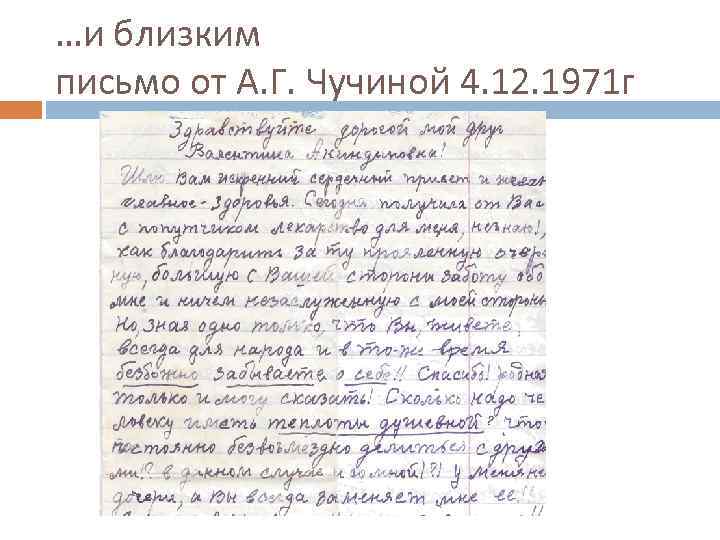 …и близким
письмо от А.Г. Чучиной 4.12.1971г
Здравствуйте дорогой мой друг
Валентина Акиндиновна!
Шлю Вам искренний сердечный привет и
главное - здоровья. Сегодня получила от Вас
с попутчиком лекарство для меня, не знаю!,
как благодарить за ту проявленную очеред
ную, большую с Вашей стороны заботу обо
мне и ничем незаслуженную с моей стороны
Но, зная одно только, что Вы, живете,
всегда для народа и в то-же время
безбожно забываете о себе!! Спасибо! родная
только и могу сказать! Сколько надо че
ловеку иметь теплоты душевной? что
постоянно безвозмездно делиться с друзья
ми!? в данном случае и со мной!?! у меня не
дочери, а Вы всегда заменяет мне ее!!